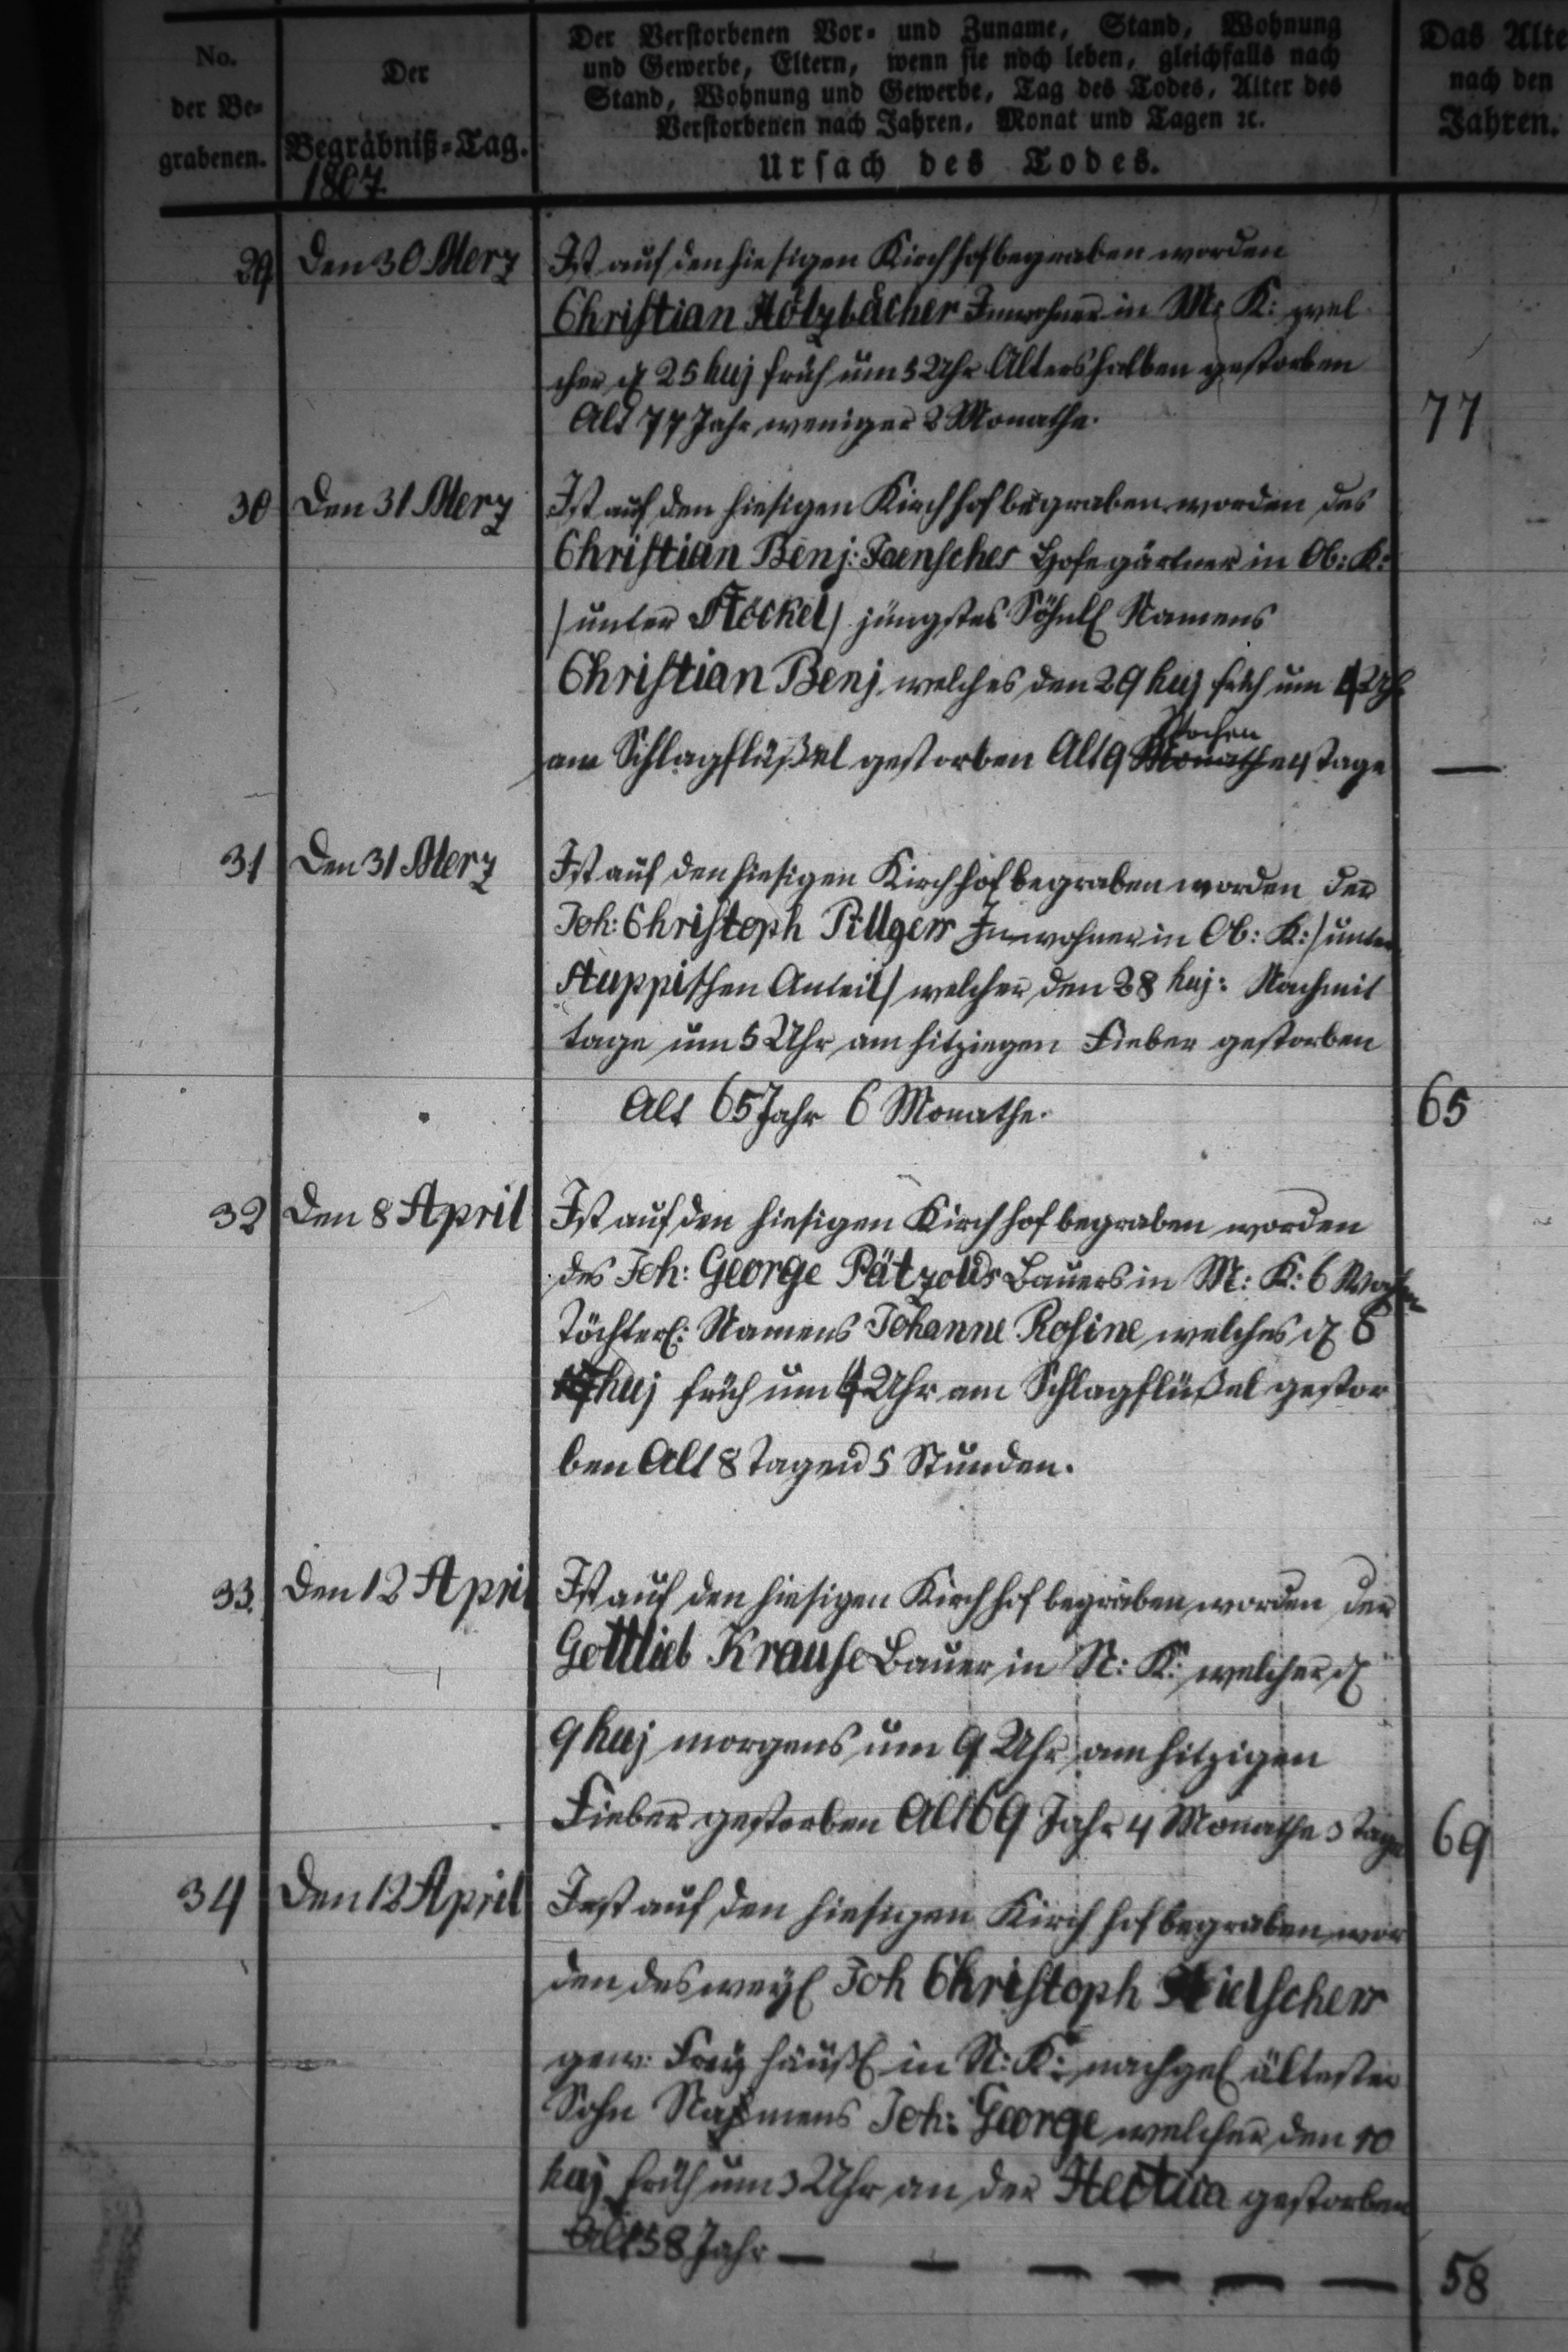 No.
der Be-
grabenen.
Der
Begräbniß-Tag.
1807
Der Verstorbenen Vor- und Zuname, Stand, Wohnung
und Gewerbe, Eltern, wenn sie noch leben, gleichfalls nach
Stand, Wohnung und Gewerbe, Tag des Todes, Alter des
Verstorbenen nach Jahren, Monat und Tagen ꝛc.
Ursach des Todes.
Das Alte
nach den
Jahren.
29 Den 30 Merz
Ist auf den hiesigen Kirchhof begraben worden
Christian Holzbächer Inwohner in M: K: wel
cher d 25 huj früh um 5 Uhr Altershalben gestorben
Alt 77 Jahr weniger 2 Monathe. 77
30 Den 31 Merz
Ist auf den hiesigen Kirchhof begraben worden des
Christian Benj: Jaensches Hofegärtner in Ob: K:
/unter Höckel/ jüngstes Söhnl Namens
Christian Benj welches den 29 huj früh um 4 Uhr
Wochen
am Schlagflüßel gestorben Alt 9 Monathe 4 Tage —
31 Den 31 Merz
Ist auf den hiesigen Kirchhof begraben worden der
Joh: Christoph Pillger Inwohner in Ob: K: /unter
Huppischen Anteil/ welcher den 28 huj: Nachmit
tage um 5 Uhr am hitziegen Fieber gestorben
Alt 65 Jahr 6 Monathe. 65
32 Den 8 April
Ist auf den hiesigen Kirchhof begraben worden
des Joh: George Pätzolds Bauers in M: K: 6 Wochen
Töchterl: Namens Johanne Rosine welches d 6
huj früh um 4 Uhr am Schlagflüßel gestor
ben Alt 8 Tage u 5 Stunden.
33. Den 12 April
Ist auf den hiesigen Kirchhof begraben worden der
Gottlieb Krause Bauer in N: K: welcher d
9 huj morgens um 9 Uhr am hitzigen
Fieber gestorben Alt 69 Jahr 4 Monathe 3 Tage 69
34 Den 12 April
Ist auf den hiesigen Kirchhof begraben wor
den des weyl Joh Christoph Hielschers
gew: Freyhäußl in N: K: nachgel ältester
Sohn Nahmens Joh: George welcher den 10
huj früh um 3 Uhr an der Hectica gestorben
Alt 58 Jahr — — — — — — 58